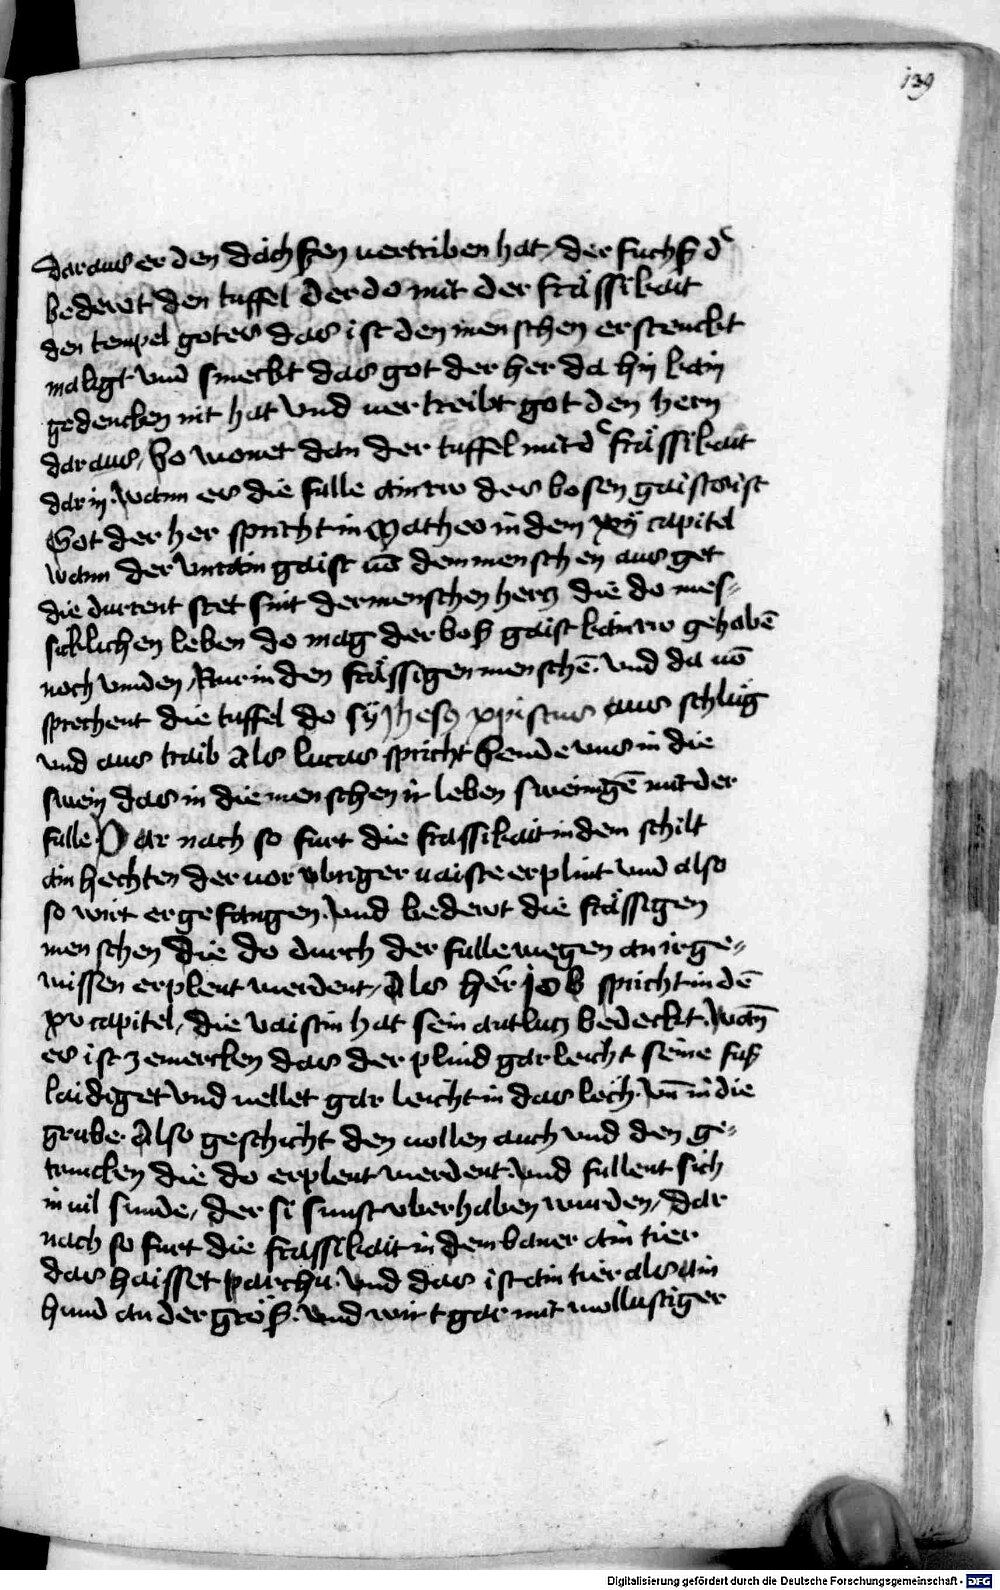 139
dar aus er den dachssen vertriben hat / der fuchs d
bedewt den tuffel der do mit der frässikait
den tempel gotes das ist den menschen erstenckt
maligt vnd smeckt das got der her da hin kain
gedencken nit hat vnd vertreibt got den hern
dar aus / So wonet dan der tuffel mit d frässikait
dar in. wann er die fulle des bosen gaistes ist
Got der her spricht in Matheo in dem xij capitel
wann der vnrain gaist vō dem menschen aus get
die durrent stet sint der menschen hercz die do mes-
sicklichen leben do mag der bos gaist kain rw gehabē
noch vinden / Nur in den frässigen menschē. vnd da vō
sprechent die tuffel do sy jhesus xpistus aus schlůg
vnd aus traib Als lucas spricht Sende vns in die
swein das in die menschen ir leben sweinigē mit der
fulle Dar nach so furt die frassikait in dem schilt
ain hechten der vor vbriger vaiste erplint vnd also
so wirt er gefangen. vnd bedewt die frässigen
menschen die do durch der fulle wegen an ir ge-
wissen erplent werdent / Als her job spricht in dē
xv capitel / die vaistin hat sein antlucz bedeckt. wan̄
es ist ze mercken das der plind gar leicht seine fus
laidiget vnd vellet gar leicht in das loch. vn̄ in die
grube. Also geschicht den vollen auch vnd den ge-
truncken die do erplent werdent. vnd fullent sich
in vil sunde / der si sunst vberhaben wurden / dar
nach so furt die frassikait in dem baner ain tier
das haisset parchu. vnd das ist ain tier als ain
hund an der grös. vnd wirt gar mit wollustiger
Digitalisierung gefördert durch die Deutsche Forschungsgemeinschaft - DFG